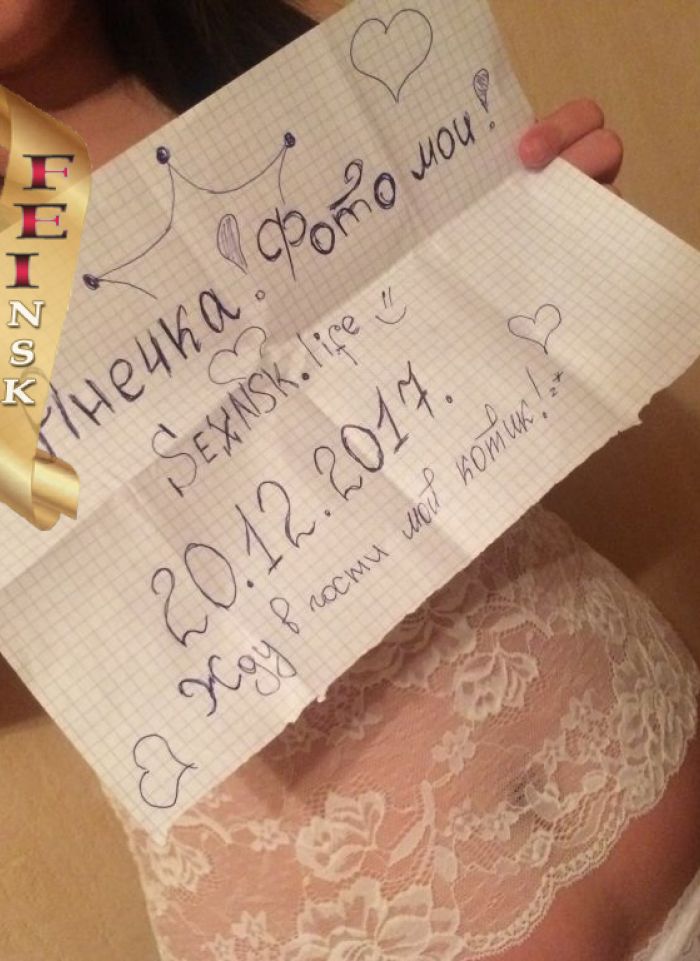 FEINSK
Анечка! Фото мои!
SEXNSK.life
20.12.2017.
Жду в гости мой котик!